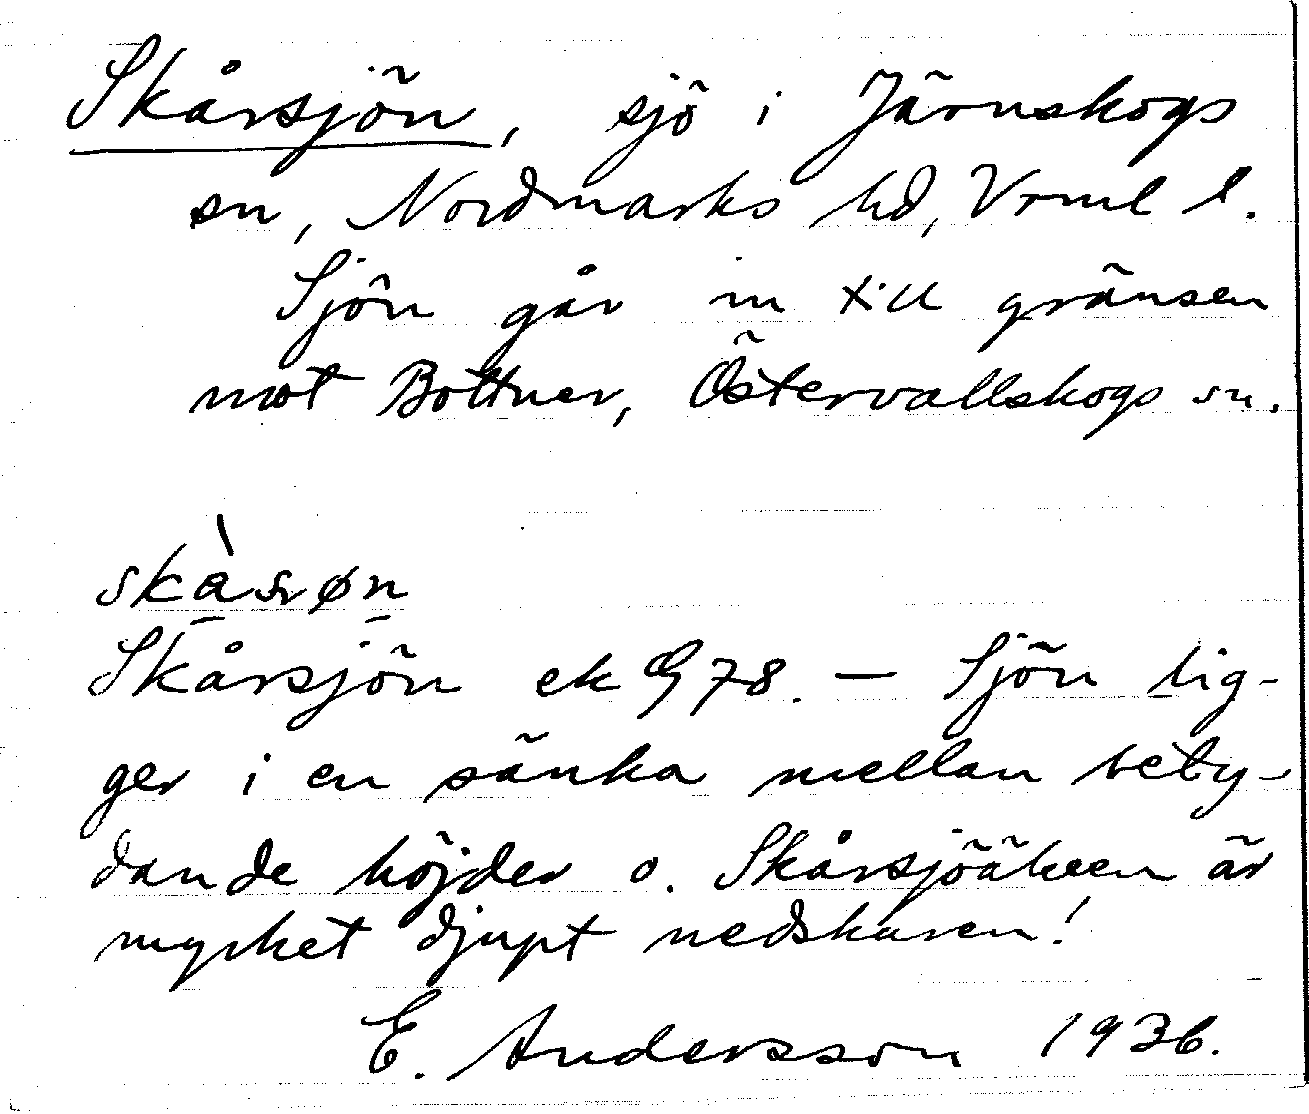 Skårsjön, sjö i Järnskogs
sn, Nordmarks hd, Vrml l.
Sjön går in till gränsen
mot Bottner, Östervallskogs sn.
Skårsjön ek G 78. — Sjön lig-
ger i en sänka mellan bety-
dande höjder o. Skårsjöälven är
mycket djupt nedskuren!
E. Andersson 1936.